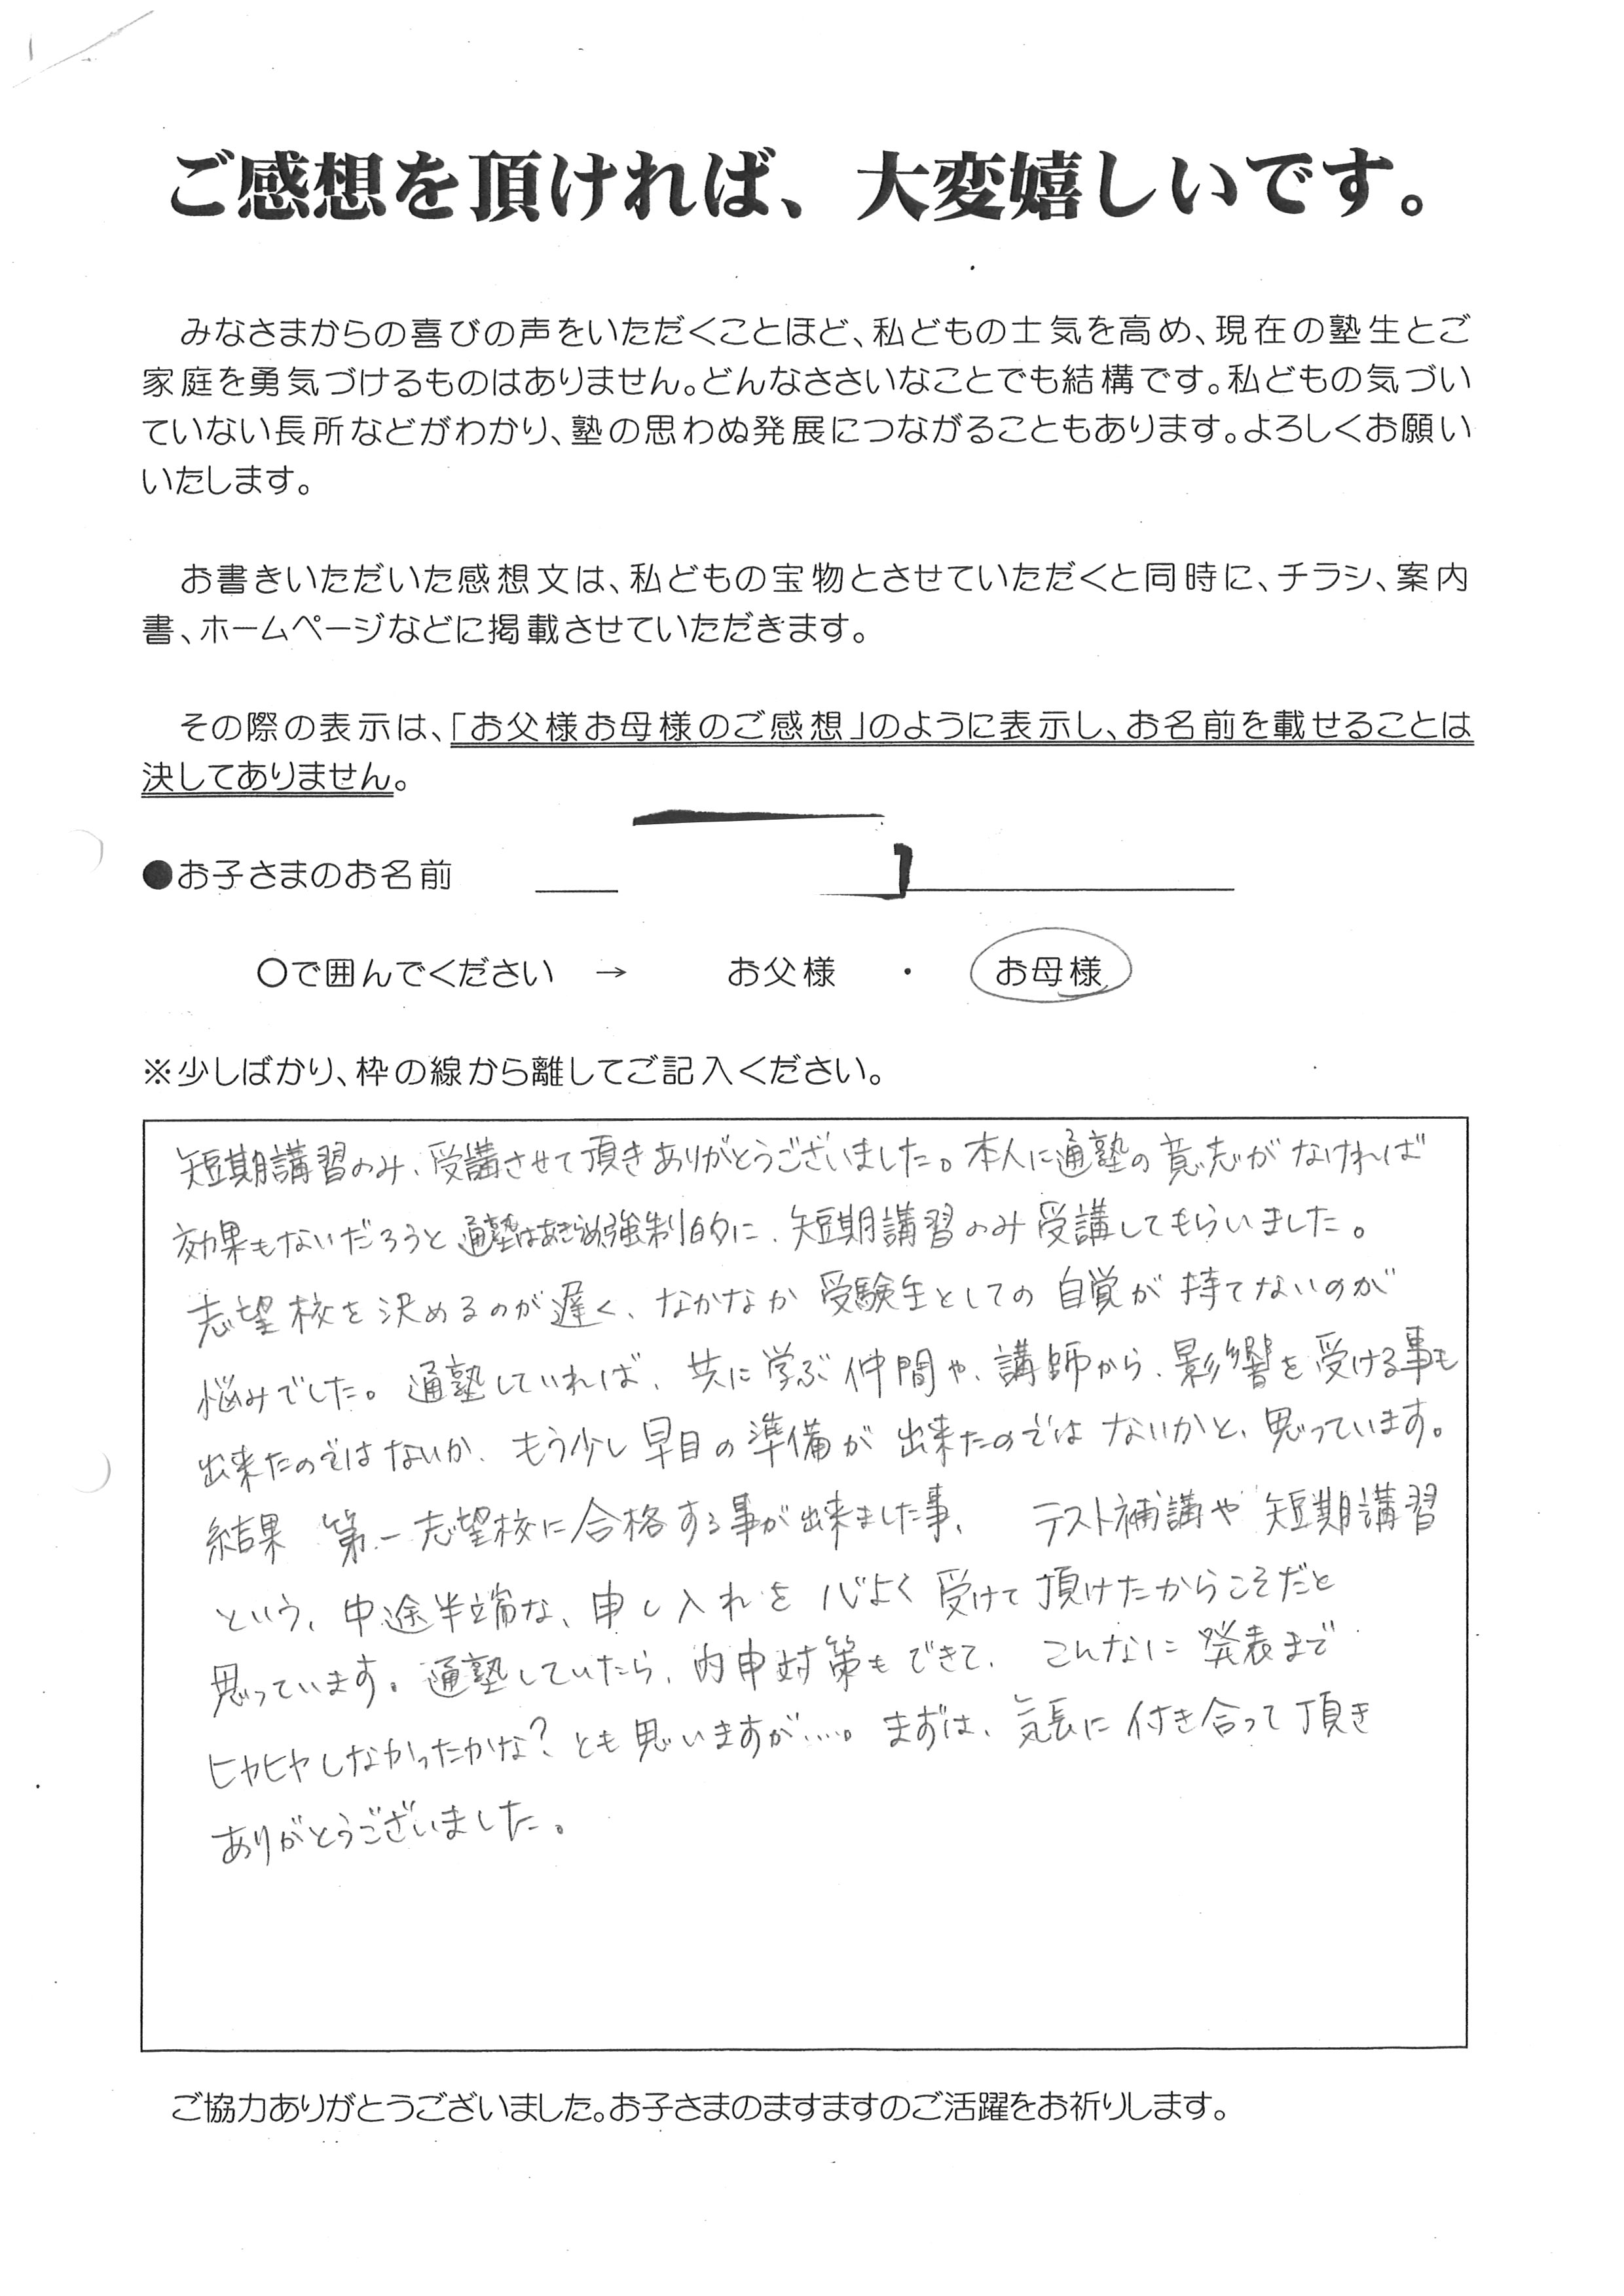 ご感想を頂ければ、大変嬉しいです。
みなさまからの喜びの声をいただくことほど、私どもの士気を高め、現在の塾生とご
家庭を勇気づけるものはありません。どんなささいなことでも結構です。私どもの気づい
ていない長所などがわかり、塾の思わぬ発展につながることもあります。よろしくお願い
いたします。
お書きいただいた感想文は、私どもの宝物とさせていただくと同時に、チラシ、案内
書、ホームページなどに掲載させていただきます。
その際の表示は、「お父様お母様のご感想」のように表示し、お名前を載せることは
決してありません。
●お子さまのお名前
○で囲んでください → お父様 ・ お母様
※少しばかり、枠の線から離してご記入ください。
短期講習のみ、受講させて頂きありがとうございました。本人に通塾の意志がなければ
効果もないだろうと通塾はあきらめ強制的に、短期講習のみ受講してもらいました。
志望校を決めるのが遅く、なかなか受験生としての自覚が持てないのが
悩みでした。通塾していれば、共に学ぶ仲間や、講師から、影響を受ける事も
出来たのではないか、もう少し早目の準備が出来たのではないかと、思っています。
結果 第一志望校に合格する事が出来ました事、 テスト補講や短期講習
という、中途半端な、申し入れを心よく受けて頂けたからこそだと
思っています。通塾していたら、内申対策もできて、こんなに発表まで
ヒヤヒヤしなかったかな?とも思いますが…。まずは、気長に付き合って頂き
ありがとうございました。
ご協力ありがとうございました。お子さまのますますのご活躍をお祈りします。